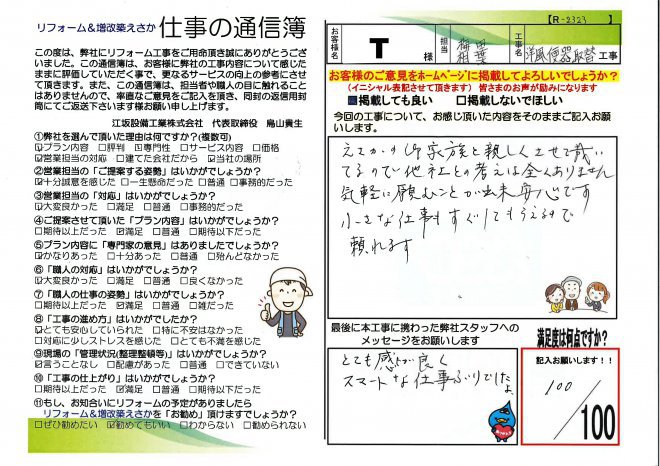 リフォーム＆増改築えさか 仕事の通信簿
この度は、弊社にリフォーム工事をご用命頂き誠にありがとうござ
いました。この通信簿は、お客様に弊社の工事内容について感じた
ままに評価していただく事で、更なるサービスの向上の参考にさせ
て頂きます。また、この通信簿は、担当者や職人の目に触れること
はありませんので、率直なご意見をご記入を頂き、同封の返信用封
筒にてご返送下さいます様お願い申し上げます。
江坂設備工業株式会社 代表取締役 鳥山貴生
①弊社を選んで頂いた理由は何ですか?(複数可)
☑プラン内容 □評判 ☑専門性 □サービス内容 □価格
☑営業担当の対応 □建てた会社だから ☑当社の場所
②営業担当の「ご提案する姿勢」はいかがでしょうか?
☑十分誠意を感じた □一生懸命だった □普通 □事務的だった
③営業担当の「対応」はいかがでしょうか?
☑大変良かった □満足 □普通 □事務的だった
④ご提案させて頂いた「プラン内容」はいかがでしょうか?
□期待以上だった ☑満足 □普通 □期待以下だった
⑤プラン内容に「専門家の意見」はありましたでしょうか?
☑かなりあった □十分あった □普通 □殆んどなかった
⑥「職人の対応」はいかがでしょうか?
☑大変良かった □満足 □普通 □良くなかった
⑦「職人の仕事の姿勢」はいかがでしょうか?
□期待以上だった ☑満足 □普通 □雑だった
⑧「工事の進め方」はいかがでしたか?
☑とても安心していられた □特に不安はなかった
□対応に少しストレスを感じた □とても不満を感じた
⑨現場の「管理状況(整理整頓等)」はいかがでしょうか?
☑言うことなし □配慮があった □普通 □できていない
⑩「工事の仕上がり」はいかがでしょうか?
□期待以上だった ☑満足 □普通 □期待以下だった
⑪もし、お知合いにリフォームの予定がありましたら
リフォーム＆増改築えさかを「お勧め」頂けますでしょうか?
□ぜひ勧めたい ☑勧めてもいい □わからない □勧められない
【R-2323 】
お客様名 T 様 担当 梅田 相葉 工事名 洋風便器取替 工事
お客様のご意見をホームページに掲載してよろしいでしょうか?
(イニシャル表記させて頂きます) 皆さまのお声が励みになります
■掲載しても良い □掲載しないでほしい
今回の工事について、お感じ頂いた内容をそのままご記入お願
いします。
家族と親しくさせて戴い
てるので他社との考えは全くありません
気軽に願むことが出来安心です
小さな仕事もすぐしてもらえるので
頼れます
最後に本工事に携わった弊社スタッフへの
メッセージをお願いします
とても感じが良く
スマートな仕事ぶりでしたよ
満足度は何点ですか?
記入お願いします!!
100
/100